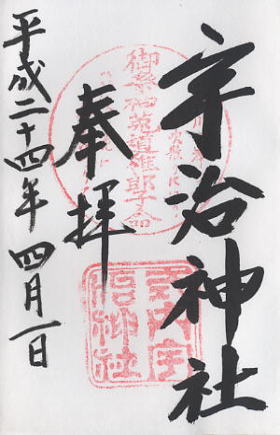 宇治神社
奉拝
平成二十四年四月一日
御祭神菟道稚郎子命